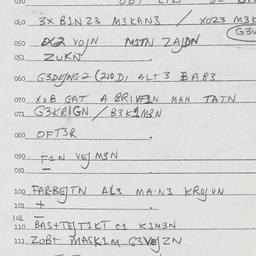 040 3X B1NZ3 M3KAN3 / XOZ3 M3K
050 VOJN MITN ZAJDN
051 ZUKN
060 ALT3 BAB3
070 XOB GAT A BRIVF1N MAN TATN
071 G3KRIGN / B3K1M3N
080 OFT3R
090 F1N VEJ M3N
091
100 FARBEJTN AL3 MA'N3 KROJVN
101 +
102
110 BAS+TEJT1KT C1 K1M3N
111 ZOB+ MASK1M G3VEJZN